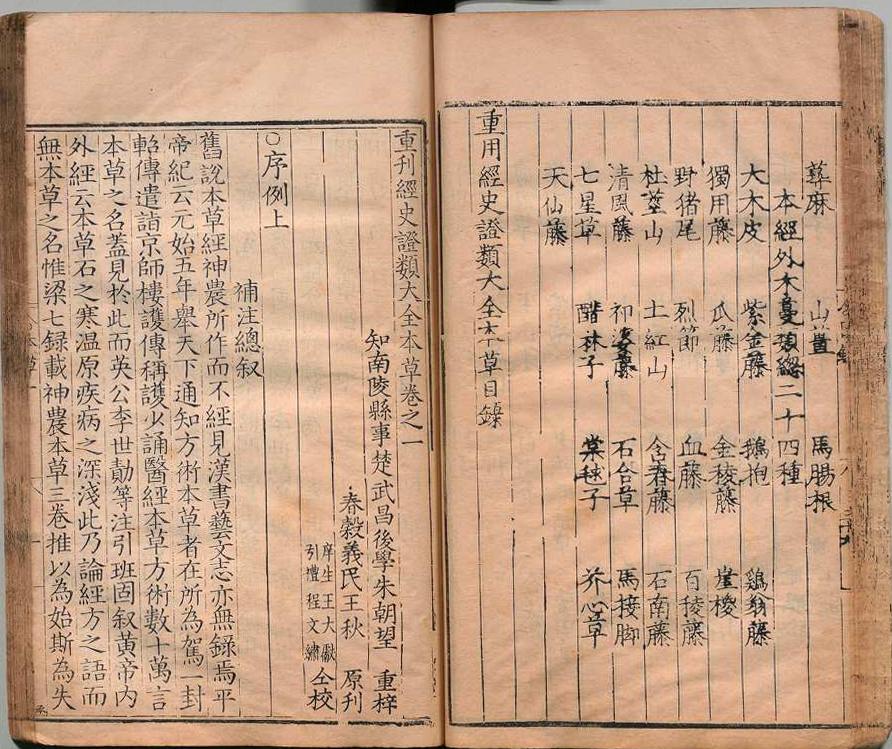 蕁麻 山薑 馬腸根
本經外木蔓類總二十四種
大木皮 紫金藤 鵝抱 鷄翁藤
獨用藤 瓜藤 金稜藤 崖椶
野猪尾 烈節 血藤 百稜藤
杜莖山 土紅山 含春藤 石南藤
清風藤 祁婆藤 石合草 馬接脚
七星草 醋林子 棠毬子 芥心草
天仙藤
重用經史證類大全本草目錄
重刊經史證類大全本草卷之一
知南陵縣事楚武昌後學朱朝望 重梓
春穀義民王秋 原刊
庠生王大獻
引禮程文繡 仝校
○序例上
補注總叙
舊說本草經神農所作而不經見漢書藝文志亦無錄焉平
帝紀云元始五年舉天下通知方術本草者在所為駕一封
軺傳遣詣京師樓護傳稱護少誦醫經本草方術數十萬言
本草之名蓋見於此而英公李世勣等注引班固叙黃帝內
外經云本草石之寒温原疾病之深淺此乃論經方之語而
無本草之名惟梁七錄載神農本草三卷推以為始斯為失